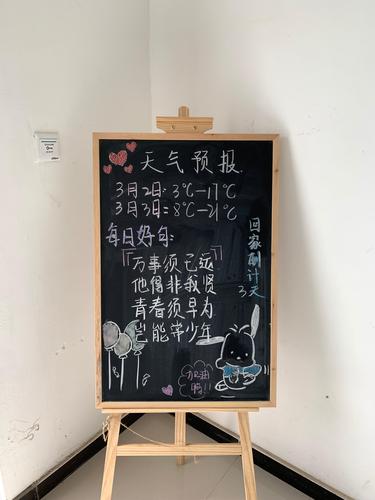 天气预报
3月2日: 3℃—17℃
3月3日: 8℃—21℃
每日好句:
『万事须己运
他得非我贤
青春须早为
岂能常少年』
回家倒计
3天
加油
鸭!!